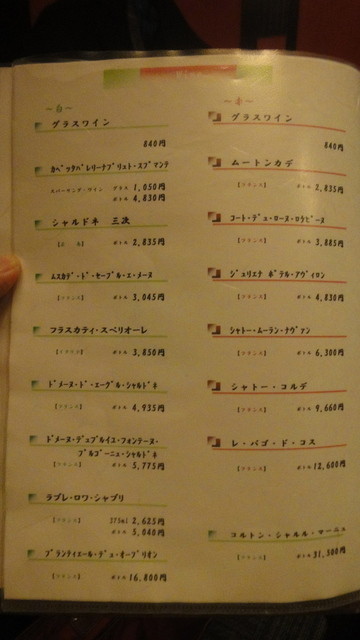 ～白～
グラスワイン
840円
カベッタベレリーナブリュト・スプマンテ
スパークリング・ワイン グラス 1,050円
ボトル 4,830円
シャルドネ 三次
【日本】 ボトル 2,835円
ムスカデ・ド・セーブル・エ・メーヌ
【フランス】 ボトル 3,045円
フラスカティ・スペリオーレ
【イタリア】 ボトル 3,850円
ドメーヌ・ド・エーグル・シャルドネ
【フランス】 ボトル 4,935円
ドメーヌ・デュブルイエ・フォンテーヌ・
ブルゴーニュ・シャルドネ
【フランス】 ボトル 5,775円
ラブレ・ロワ・シャブリ
【フランス】 375ml 2,625円
ボトル 5,040円
プランティエール・デュ・オーブリオン
【フランス】 ボトル 16,800円
～赤～
グラスワイン
840円
ムートンカデ
【フランス】 ボトル 2,835円
コート・デュ・ローヌ・ロゥビーヌ
【フランス】 ボトル 3,885円
ジュリエナ ポテル・アヴィロン
【フランス】 ボトル 4,830円
シャトー・ムーラン・ナヴァン
【フランス】 ボトル 6,300円
シャトー・コルデ
【フランス】 ボトル 9,660円
レ・パゴ・ド・コス
【フランス】 ボトル 12,600円
コルトン・シャルル・マーニュ
【フランス】 ボトル 31,500円